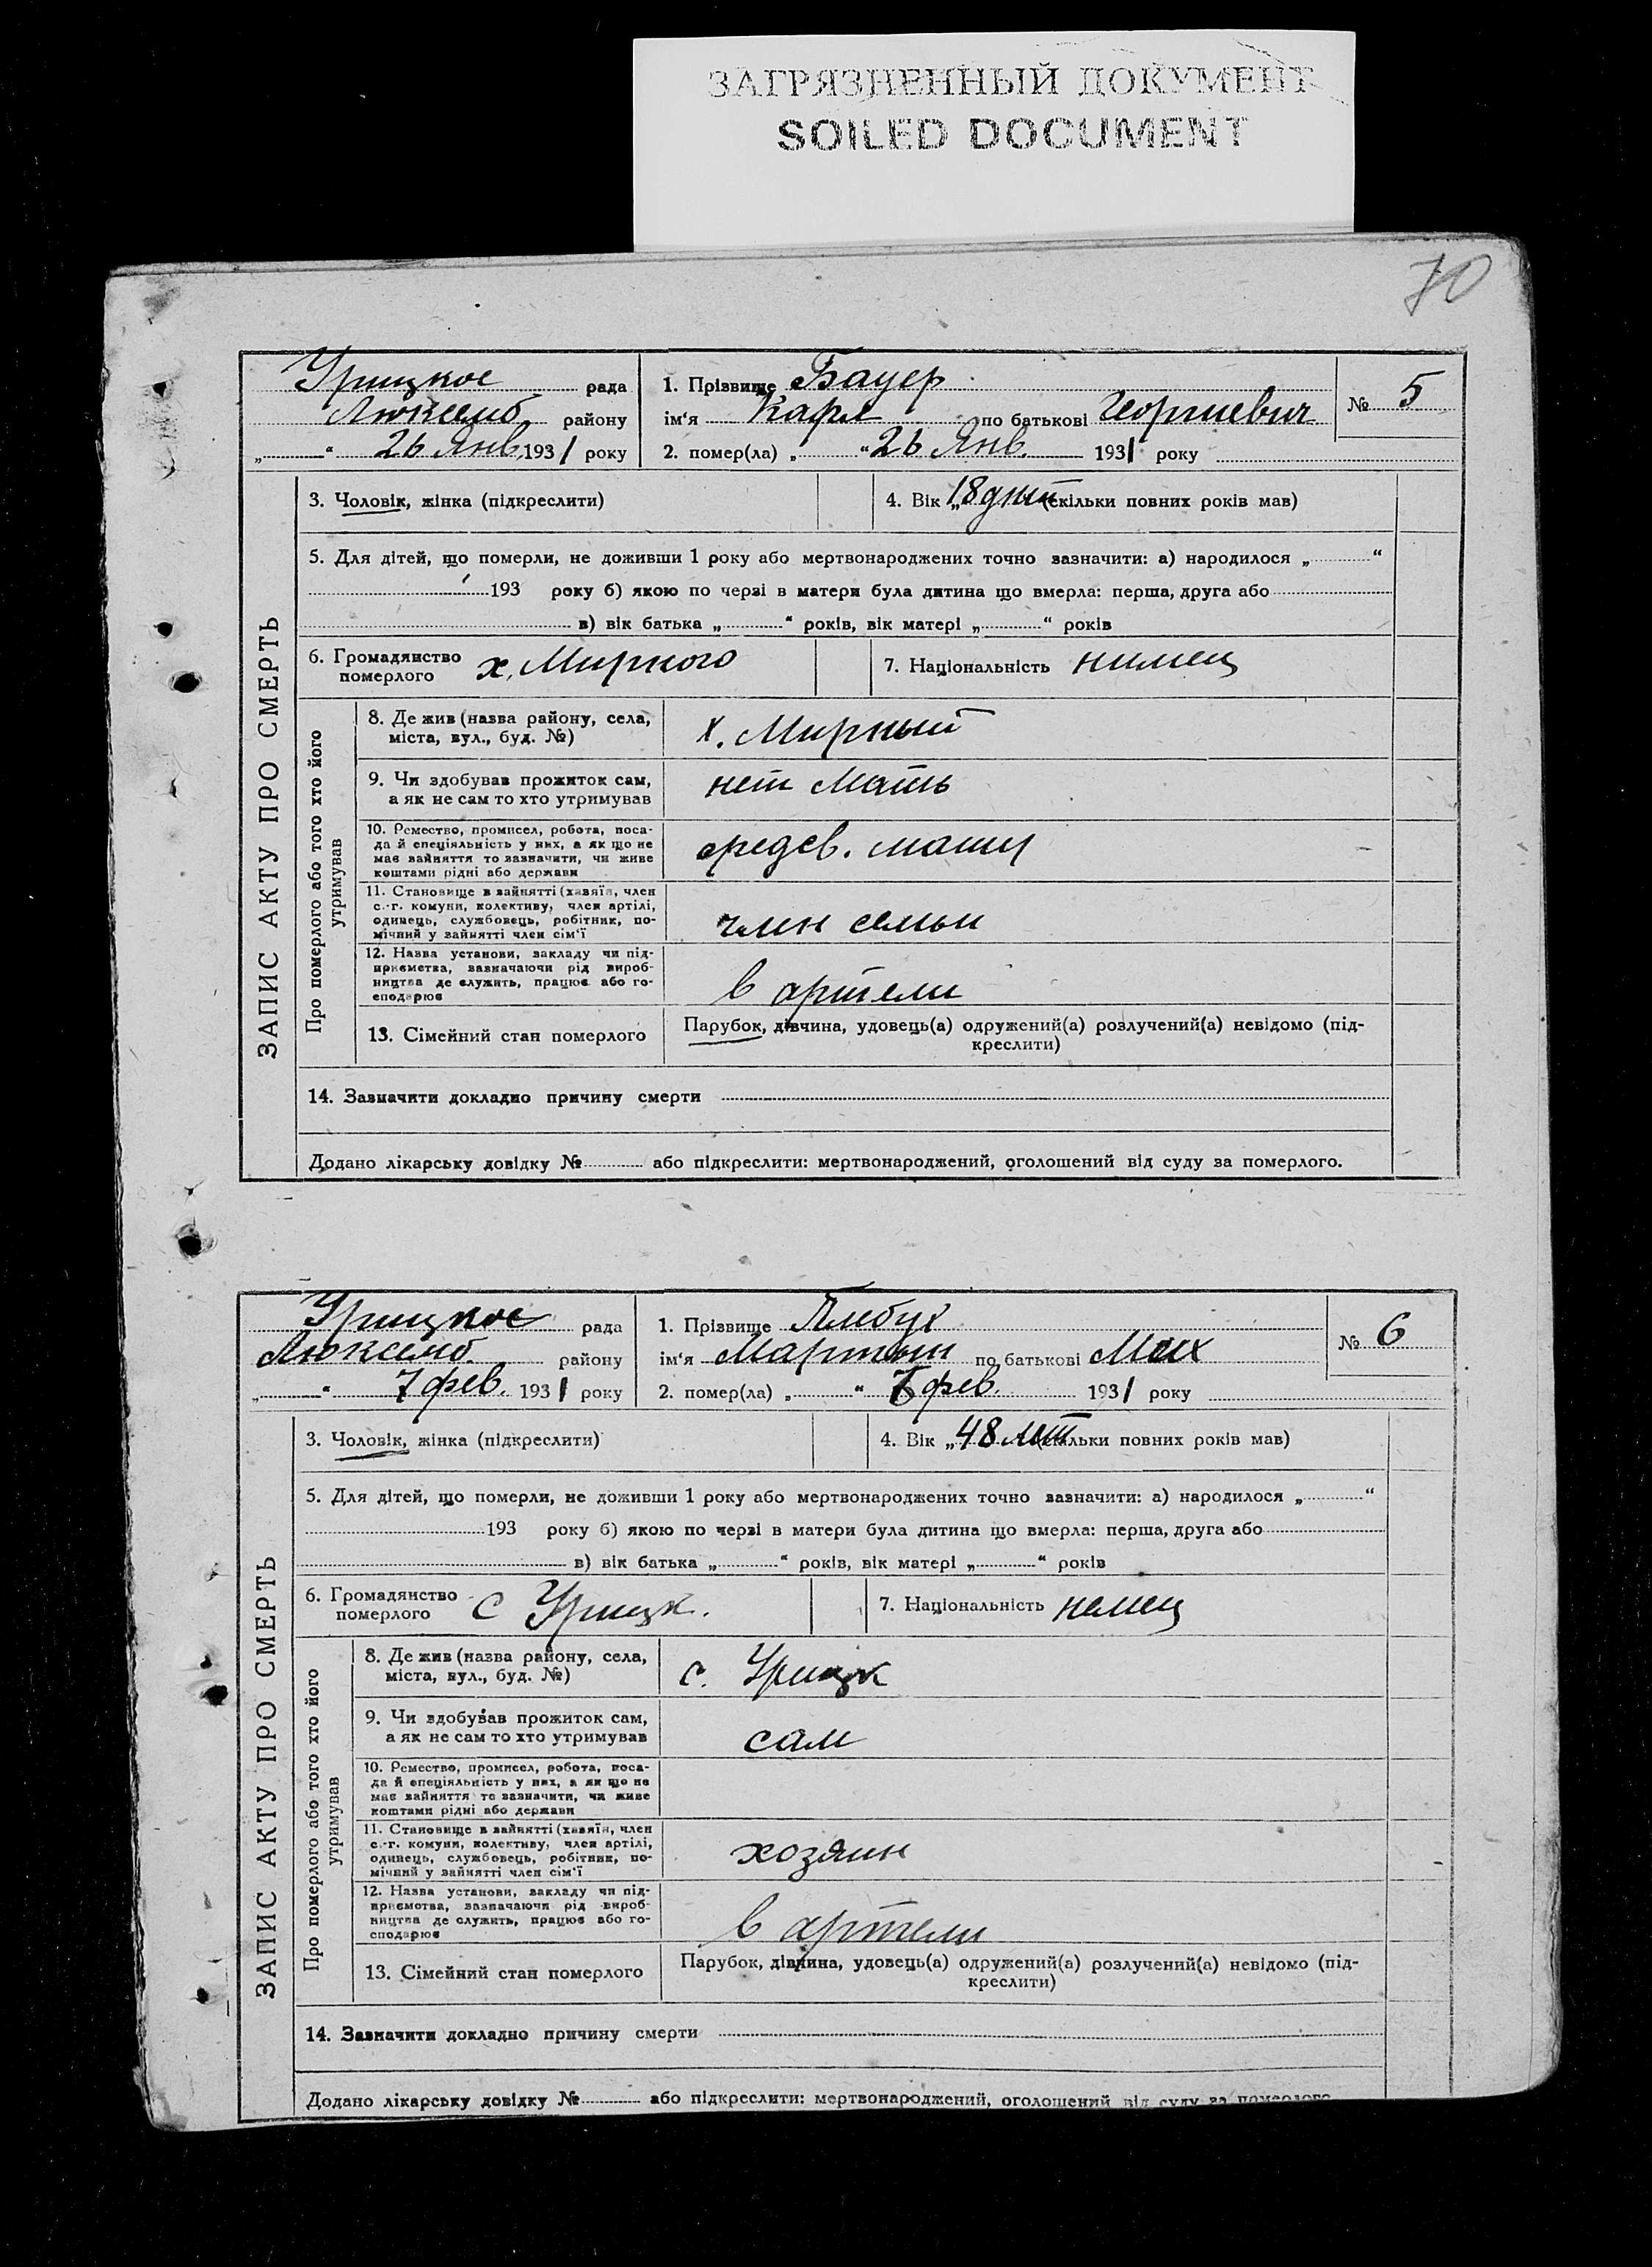 ЗАГРЯЗНЕННЫЙ ДОКУМЕНТ
SOILED DOCUMENT
70
ЗАПИС АКТУ ПРО СМЕРТЬ
Урицкое рада
Люксемб. району
„ “ 26 Янв. 1931 року
1. Прізвище Бауер
ім‘я Карл по батькові Георгиевич
2. помер(ла) „ “ 26 Янв. 1931 року
№ 5
3. Чоловік, жінка (підкреслити)
4. Вік „18 дней (скільки повних років мав)
5. Для дітей, що померли, не доживши 1 року або мертвонароджених точно зазначити: а) народилося „ “
193 року б) якою по черзі в матери була дитина що вмерла: перша, друга або
в) вік батька „ “ років, вік матері „ “ років
6. Громадянство померлого х. Мирного
7. Національність
Про померлого або того хто його утримував
8. Де жив (назва району, села,
міста, вул., буд. №)
х. Мирный
9. Чи здобував прожиток сам,
а як не сам то хто утримував
нет Мать
10. Ремество, промисел, робота, поса-
да й спеціяльність у них, а як що не
має зайняття то зазначити, чи живе
коштами рідні або держави
11. Становище в зайнятті (хазяїн, член
с.-г. комуни, колективу, член артілі,
одинець, службовець, робітник, по-
мічний у зайнятті член сім‘ї
член семьи
12. Назва установи, закладу чи під-
приємства, зазначаючи рід вироб-
ництва де служить, працює або го-
сподарює
в артели
13. Сімейний стан померлого
Парубок, дівчина, удовець(а) одружений(а) розлучений(а) невідомо (під-
креслити)
14. Зазначити докладно причину смерти
Додано лікарську довідку № або підкреслити: мертвонароджений, оголошений від суду за померлого.
ЗАПИС АКТУ ПРО СМЕРТЬ
Урицкое рада
Люксемб. району
„ “ 7 фев. 1931 року
1. Прізвище
ім‘я Мартын по батькові
2. помер(ла) „ “ 7 фев. 1931 року
№ 6
3. Чоловік, жінка (підкреслити)
4. Вік „48 лет (скільки повних років мав)
5. Для дітей, що померли, не доживши 1 року або мертвонароджених точно зазначити: а) народилося „ “
193 року б) якою по черзі в матери була дитина що вмерла: перша, друга або
в) вік батька „ “ років, вік матері „ “ років
6. Громадянство померлого с Урицк.
7. Національність немец
Про померлого або того хто його утримував
8. Де жив (назва району, села,
міста, вул., буд. №)
с. Урицк
9. Чи здобував прожиток сам,
а як не сам то хто утримував
сам
10. Ремество, промисел, робота, поса-
да й спеціяльність у них, а як що не
має зайняття то зазначити, чи живе
коштами рідні або держави
11. Становище в зайнятті (хазяїн, член
с.-г. комуни, колективу, член артілі,
одинець, службовець, робітник, по-
мічний у зайнятті член сім‘ї
хозяин
12. Назва установи, закладу чи під-
приємства, зазначаючи рід вироб-
ництва де служить, працює або го-
сподарює
в артели
13. Сімейний стан померлого
Парубок, дівчина, удовець(а) одружений(а) розлучений(а) невідомо (під-
креслити)
14. Зазначити докладно причину смерти
Додано лікарську довідку № або підкреслити: мертвонароджений, оголошений від суду за померлого